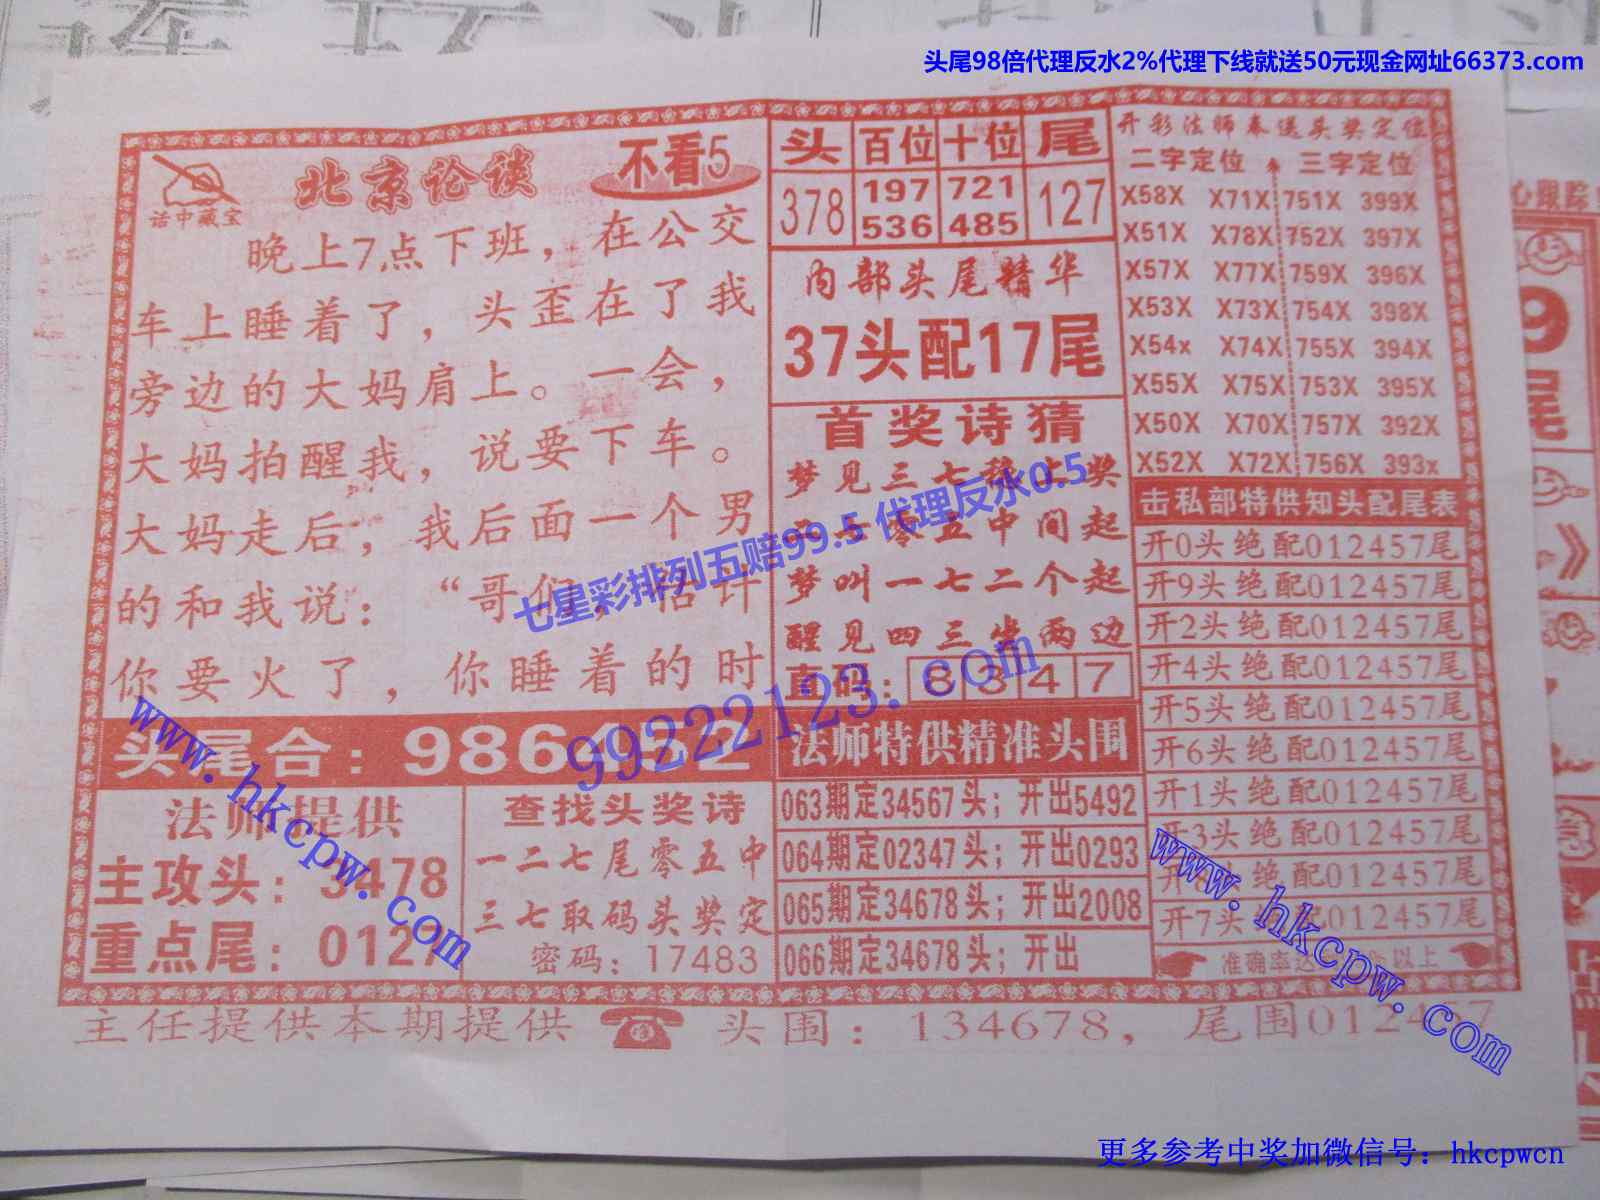 头尾98倍代理反水2%代理下线就送50元现金网址66373.com
北京论谈
不看5
话中藏宝
晚上7点下班，在公交
车上睡着了，头歪在了我
旁边的大妈肩上。一会，
大妈拍醒我，说要下车。
大妈走后，我后面一个男
的和我说：“哥们，估计
你要火了，你睡着的时
头尾合：986
法师提供
主攻头：3478
重点尾：0127
查找头奖诗
一二七尾零五中
三七取码头奖定
密码：17483
头 百位 十位 尾
378 197 721 127
536 485
内部头尾精华
37头配17尾
首奖诗猜
梦见三七 上奖
零五中间起
梦叫一七二个起
醒见四三坐两边
直码：8347
法师特供精准头围
063期定34567头；开出5492
064期定02347头；开出0293
065期定34678头；开出2008
066期定34678头；开出
开彩法师奉送头奖定位
二字定位 三字定位
X58X X71X 751X 399X
X51X X78X 752X 397X
X57X X77X 759X 396X
X53X X73X 754X 398X
X54x X74X 755X 394X
X55X X75X 753X 395X
X50X X70X 757X 392X
X52X X72X 756X 393x
击私部特供知头配尾表
开0头绝配012457尾
开9头绝配012457尾
开2头绝配012457尾
开4头绝配012457尾
开5头绝配012457尾
开6头绝配012457尾
开1头绝配012457尾
开3头绝配012457尾
开 配012457尾
开7头 配012457尾
准确率达 以上
主任提供本期提供 头围：134678，尾围012457
心跟踪
9
尾
》
七星彩排列五赔99.5 代理反水0.5
99222123.com
www.hkcpw.com
www.hkcpw.com
更多参考中奖加微信号：hkcpwcn